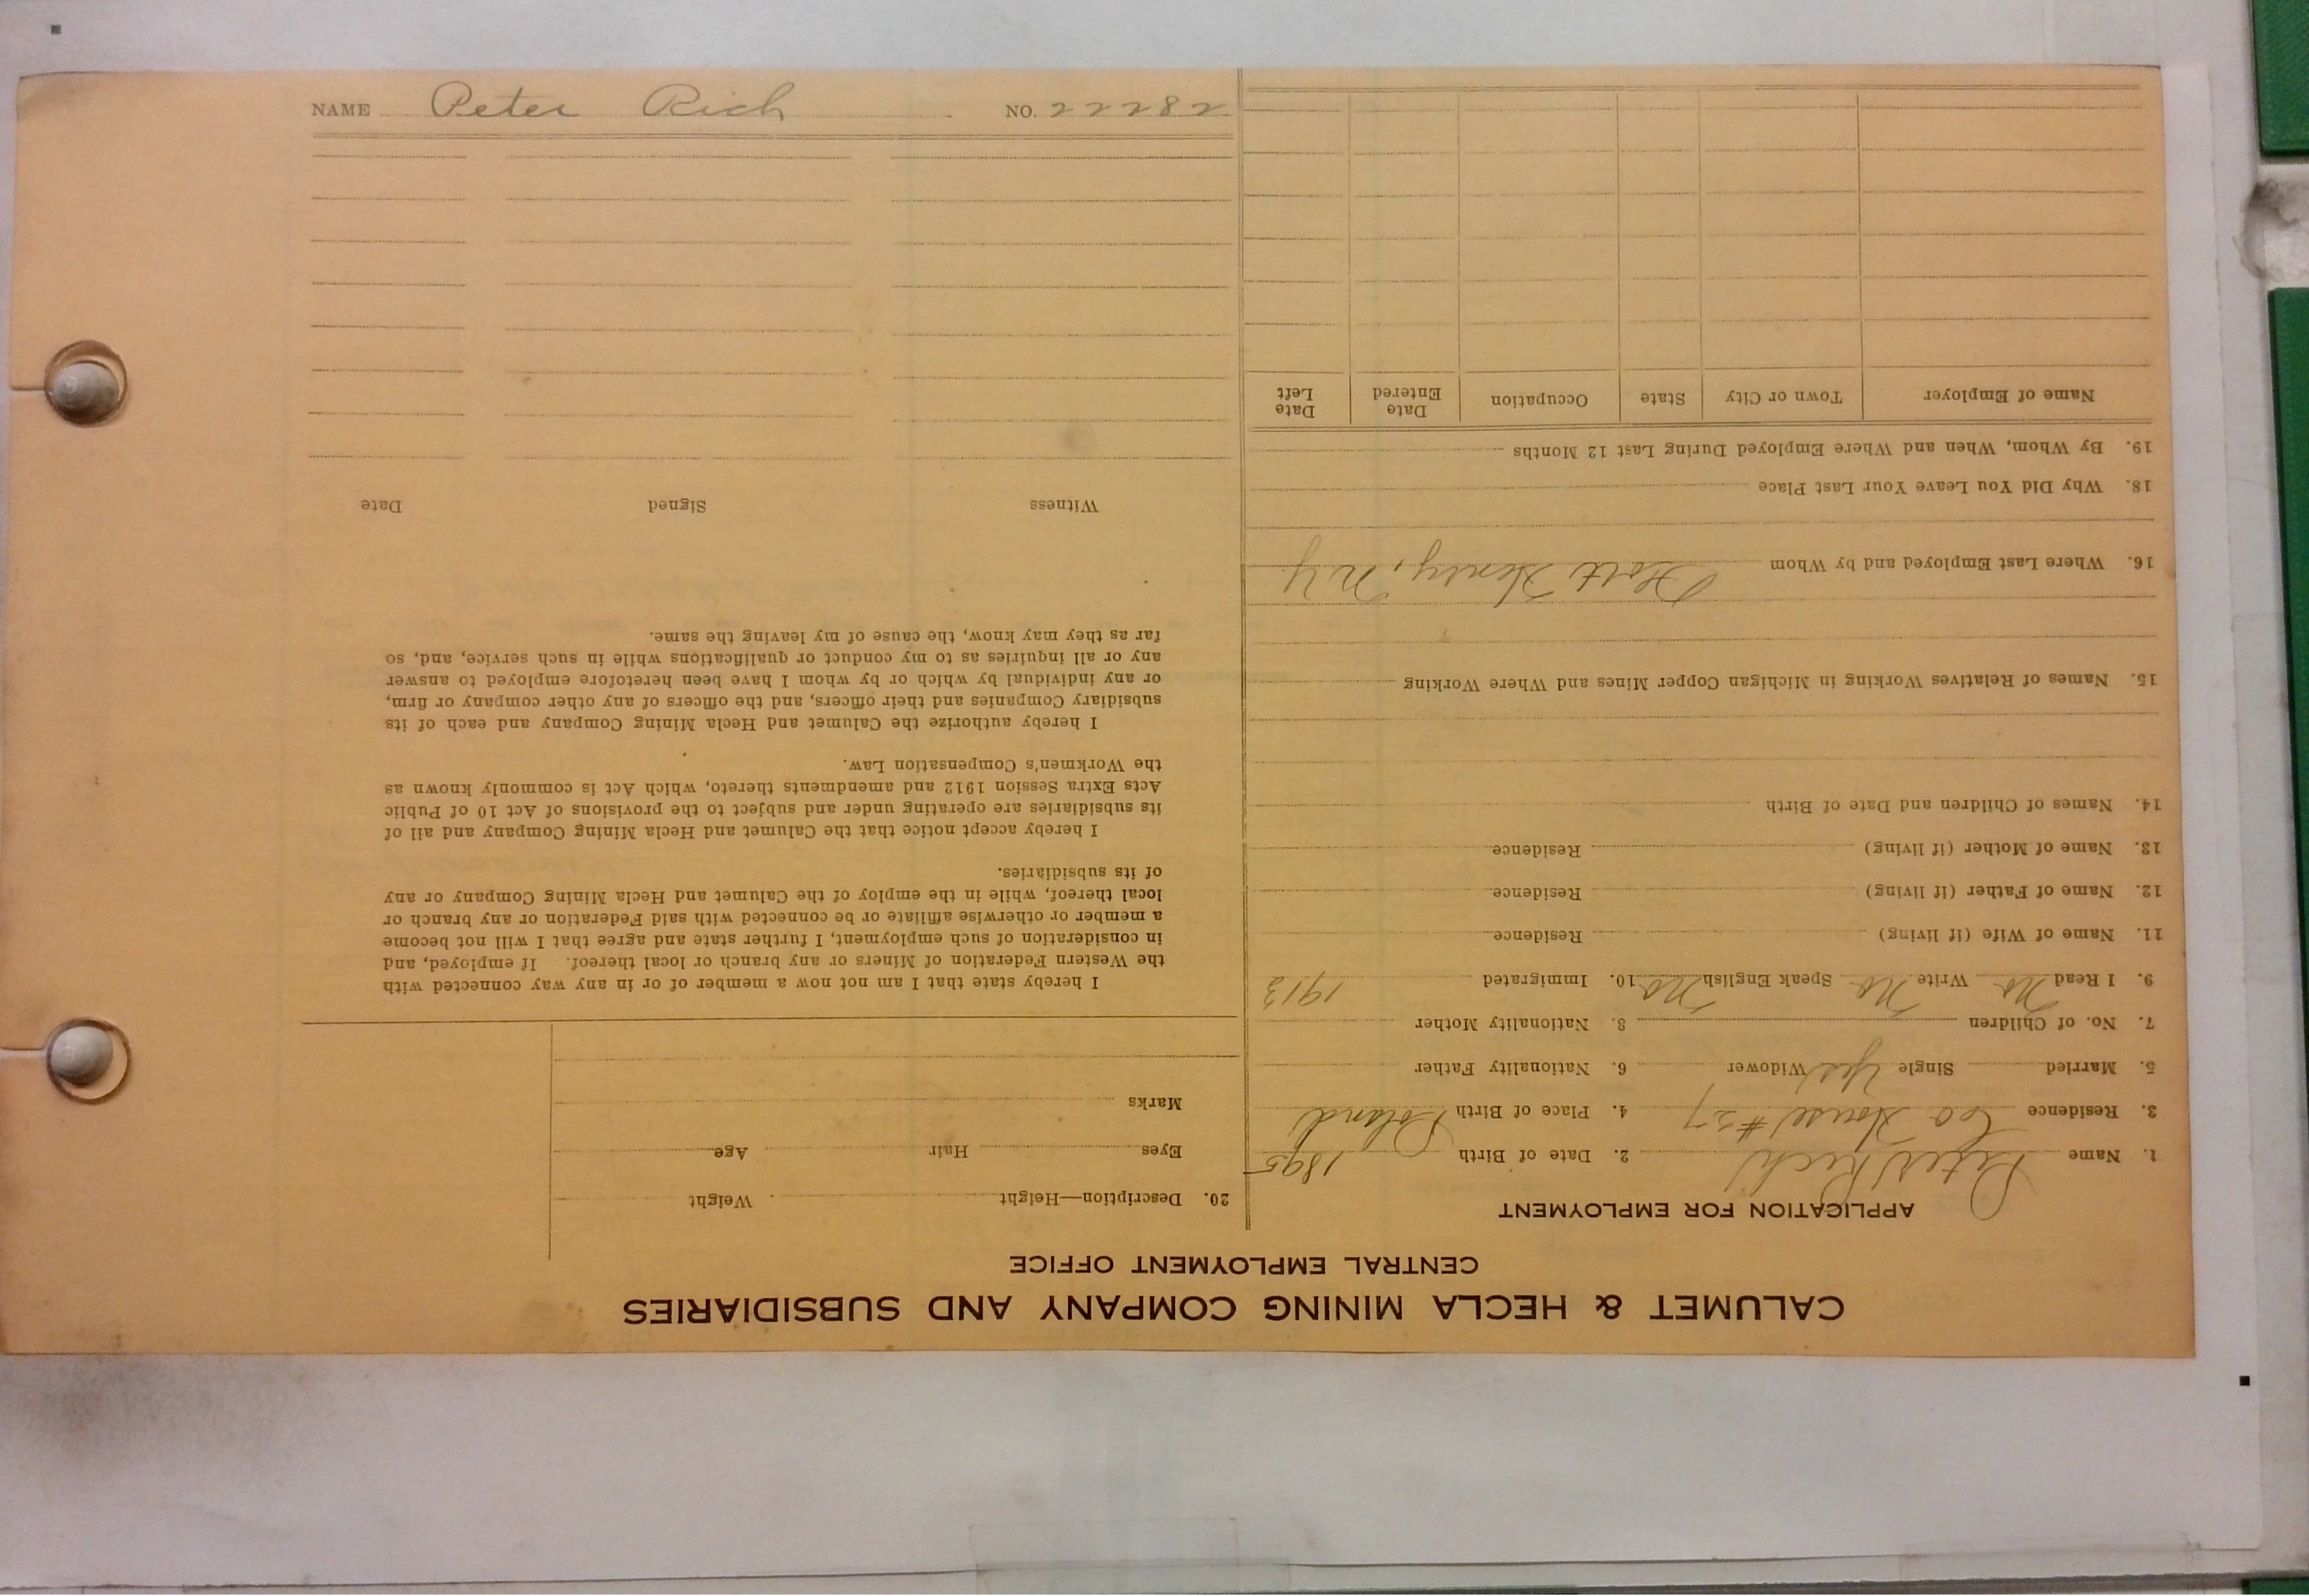 NAME Peter Rich NO. 22282
CALUMET & HECLA MINING COMPANY AND SUBSIDIARIES
CENTRAL EMPLOYMENT OFFICE
APPLICATION FOR EMPLOYMENT
1. Name Peter Rich 2. Date of Birth 1895
3. Residence Co House #27 4. Place of Birth Poland
5. Married Single Yes Widower 6. Nationality Father
7. No. of Children 8. Nationality Mother
9. I Read No Write No Speak English No 10. Immigrated 1913
11. Name of Wife (if living) Residence
12. Name of Father (if living) Residence
13. Name of Mother (if living) Residence
14. Names of Children and Date of Birth
15. Names of Relatives Working in Michigan Copper Mines and Where Working
16. Where Last Employed and by Whom Henry, NY
18. Why Did You Leave Your Last Place
19. By Whom, When and Where Employed During Last 12 Months
Name of Employer Town or City State Occupation Date Entered Date Left
20. Description—Height Weight
Eyes Hair Age
Marks
I hereby state that I am not now a member of or in any way connected with
the Western Federation of Miners or any branch or local thereof. If employed, and
in consideration of such employment, I further state and agree that I will not become
a member or otherwise affiliate or be connected with said Federation or any branch or
local thereof, while in the employ of the Calumet and Hecla Mining Company or any
of its subsidiaries.
I hereby accept notice that the Calumet and Hecla Mining Company and all of
its subsidiaries are operating under and subject to the provisions of Act 10 of Public
Acts Extra Session 1912 and amendments thereto, which Act is commonly known as
the Workmen's Compensation Law.
I hereby authorize the Calumet and Hecla Mining Company and each of its
subsidiary Companies and their officers, and the officers of any other company or firm,
or any individual by which or by whom I have been heretofore employed to answer
any or all inquiries as to my conduct or qualifications while in such service, and, so
far as they may know, the cause of my leaving the same.
Witness Signed Date